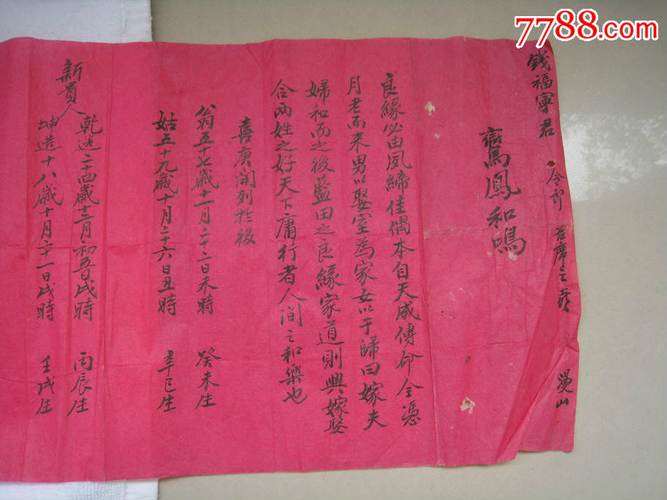 7788.com
钱福寧君 令郎 吉席之喜
鸞鳳和鳴
良緣必由夙締佳偶本自天成傳命全憑
月老而来男以娶室為家女以于歸曰嫁夫
婦和而之後藍田之良緣家道則興嫁娶
合兩姓之好天下庸行者人间之和樂也
喜庚開列於後
翁五十七歲十一月二十二日未時 癸未生
姑五十九歲十月二十六日丑時 辛巳生
新貴人
乾造二十四歲三月初五日戌時 丙辰生
坤造十八歲十月二十一日戌時 壬戌生